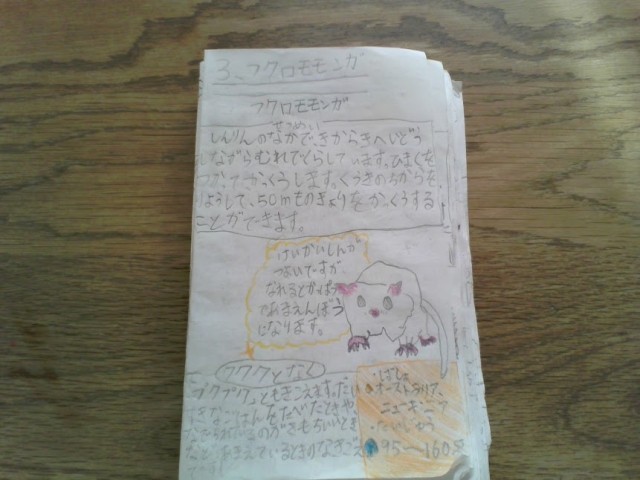 3、フクロモモンガ
フクロモモンガ
せつめい
しんりんのなかで、きからきへいどう
しながらむれでくらしています。ひまくを
つかってかっくうします。くうきのちからを
りようして、50mものきょりをかっくうする
ことができます。
けいかいしんが
つよいですが、
なれるとかっぱつ
であまえんぼう
になります。
ククククとなく
プクプクっともきこえます。だい
すきなごはんをたべたときや、
なでられているのがきもちいいとき
など あまえているときのなきごえ
・ばしょ
オーストラリア、
ニューギニア
・たいじゅう
95〜160g